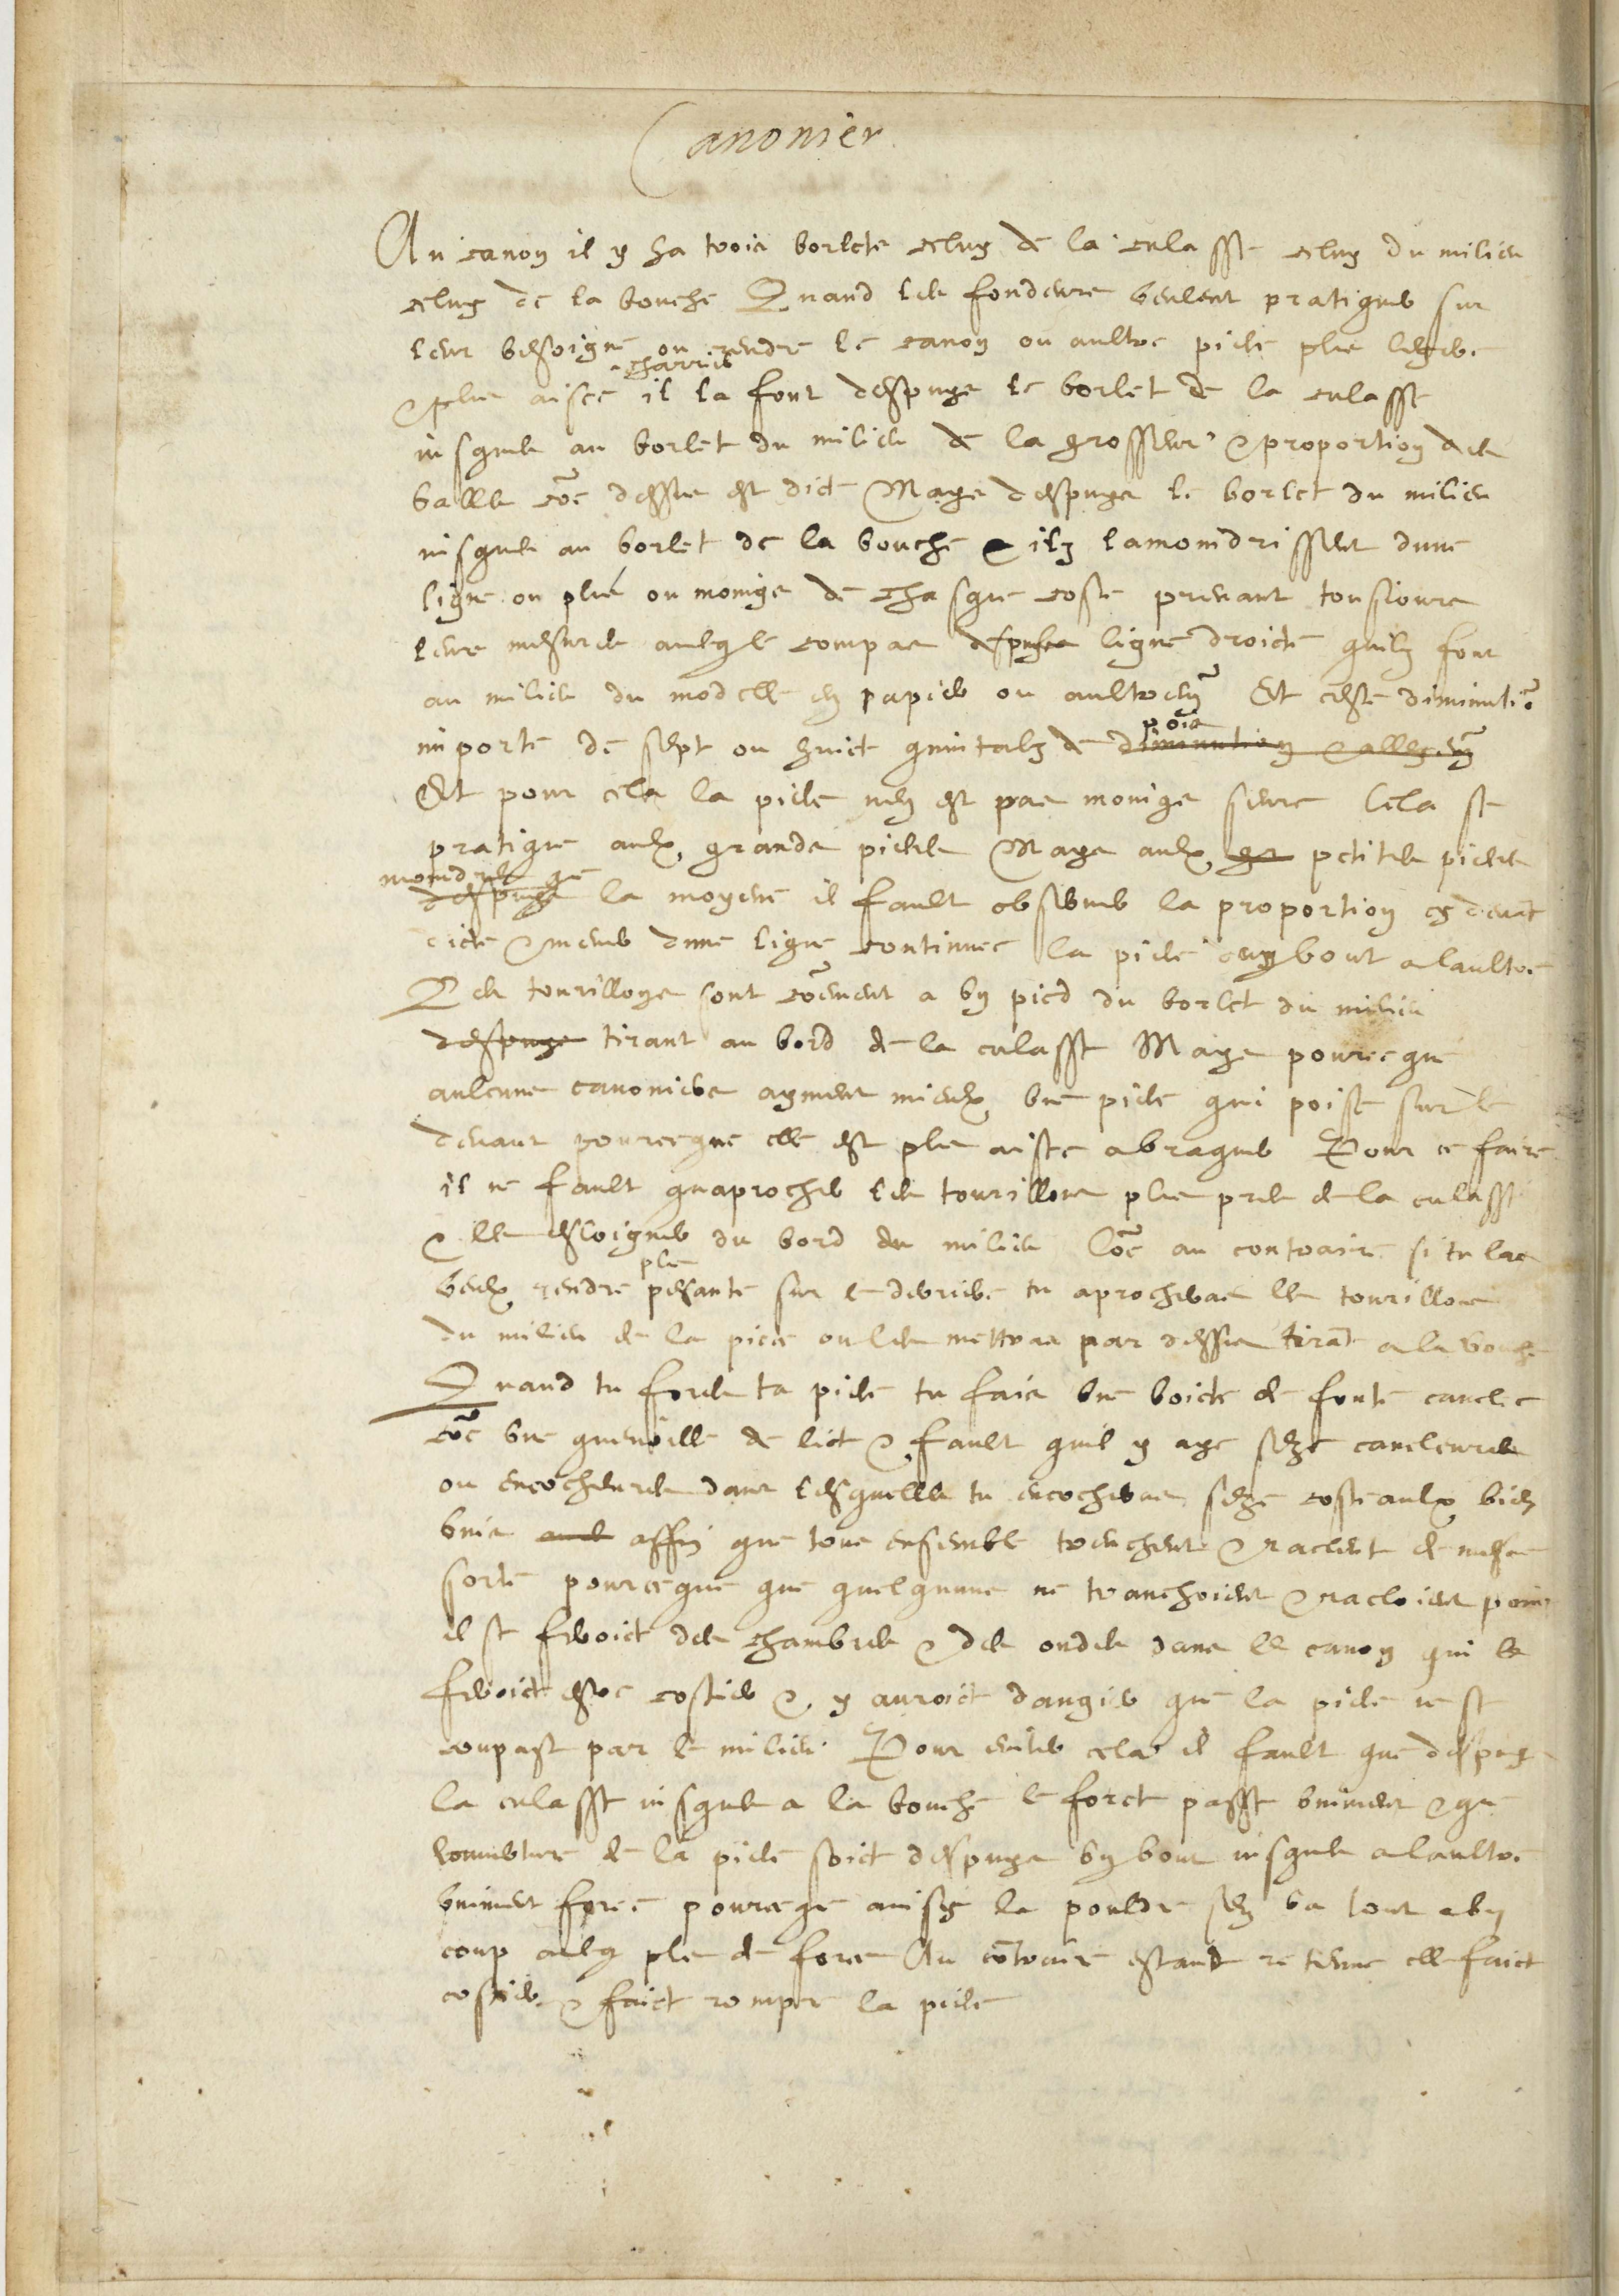 Canonier
Au canon il y ha trois borlets celuy de la culasse celuy du milieu
celuy de la bouche Quand les fondeurs veulent pratiquer sur
leur besoigne ou rendre le canon ou aultre piece plus legere
& plus aisee a charrier il la font despuys le borlet de la culasse
jusques au borlet du milieu de la grosseur & proportion des
balles coe dessus est dict Mays despuys le borlet du milieu
jusques au borlet de la bouche ilz lamoindrissent dune
ligne ou plus ou moings de chasque coste prenant tousjours
leurs mesures avecq le compas despuys ligne droicte quilz font
au milieu du modelle en papier ou aultremt Et ceste diminutio
importe de sept ou huict quintalz de diminution & allegemt pois
Et pour cela la piece nen est pas moings seure Cela se
pratique aulx grands pieces Mays aulx gr petites pieces
despuys moindres que la moyene il fault observer la proportion cy devat
dicte & mener dune ligne continuee la piece dun bout a laultre
Les tourillons sont comement a un pied du borlet du milieu
despuys tirant au bord de la culasse Mays pource que
aulcuns canoniers ayment mieulx une piece qui poise sur le
devant pourceque elle est plus aisee a braquer Pour ce faire
il ne fault quaprocher les tourillons plus pres de la culasse
& les esloigner du bord du milieu Coe au contraire si tu las
veulx rendre plus pesante sur le derriere tu aprocheras les tourillons
du milieu de la piece ou les mettras par dessus tirat a la bouche
Quand tu fores ta piece tu fais une boicte de fonte canelee
coe une quenoille de lict & fault quil y aye seze caneleures
ou encocheures dans lesquelles tu encocheras seze costeaulx bien
unis affin que tous ensemble trenchent & raclent de mesme
sorte pourceque que quelqunns ne tranchoient & racloient point
il se feroict des chambres & des ondes dans le canon qui le
feroict estre costier & y auroict dangier que la piece ne se
coupast par le milieu Pour eviter cela il fault que despuys
la culasse jusques a la bouche le foret passe uniment & que
louverture de la piece soict despuys un bout jusques a laultre
uniment foree pourceque ainsy la pouldre sen va tout a un
coup avecq plus de force Au cotraire estand retenue elle faict
costier & faict rompre la piece